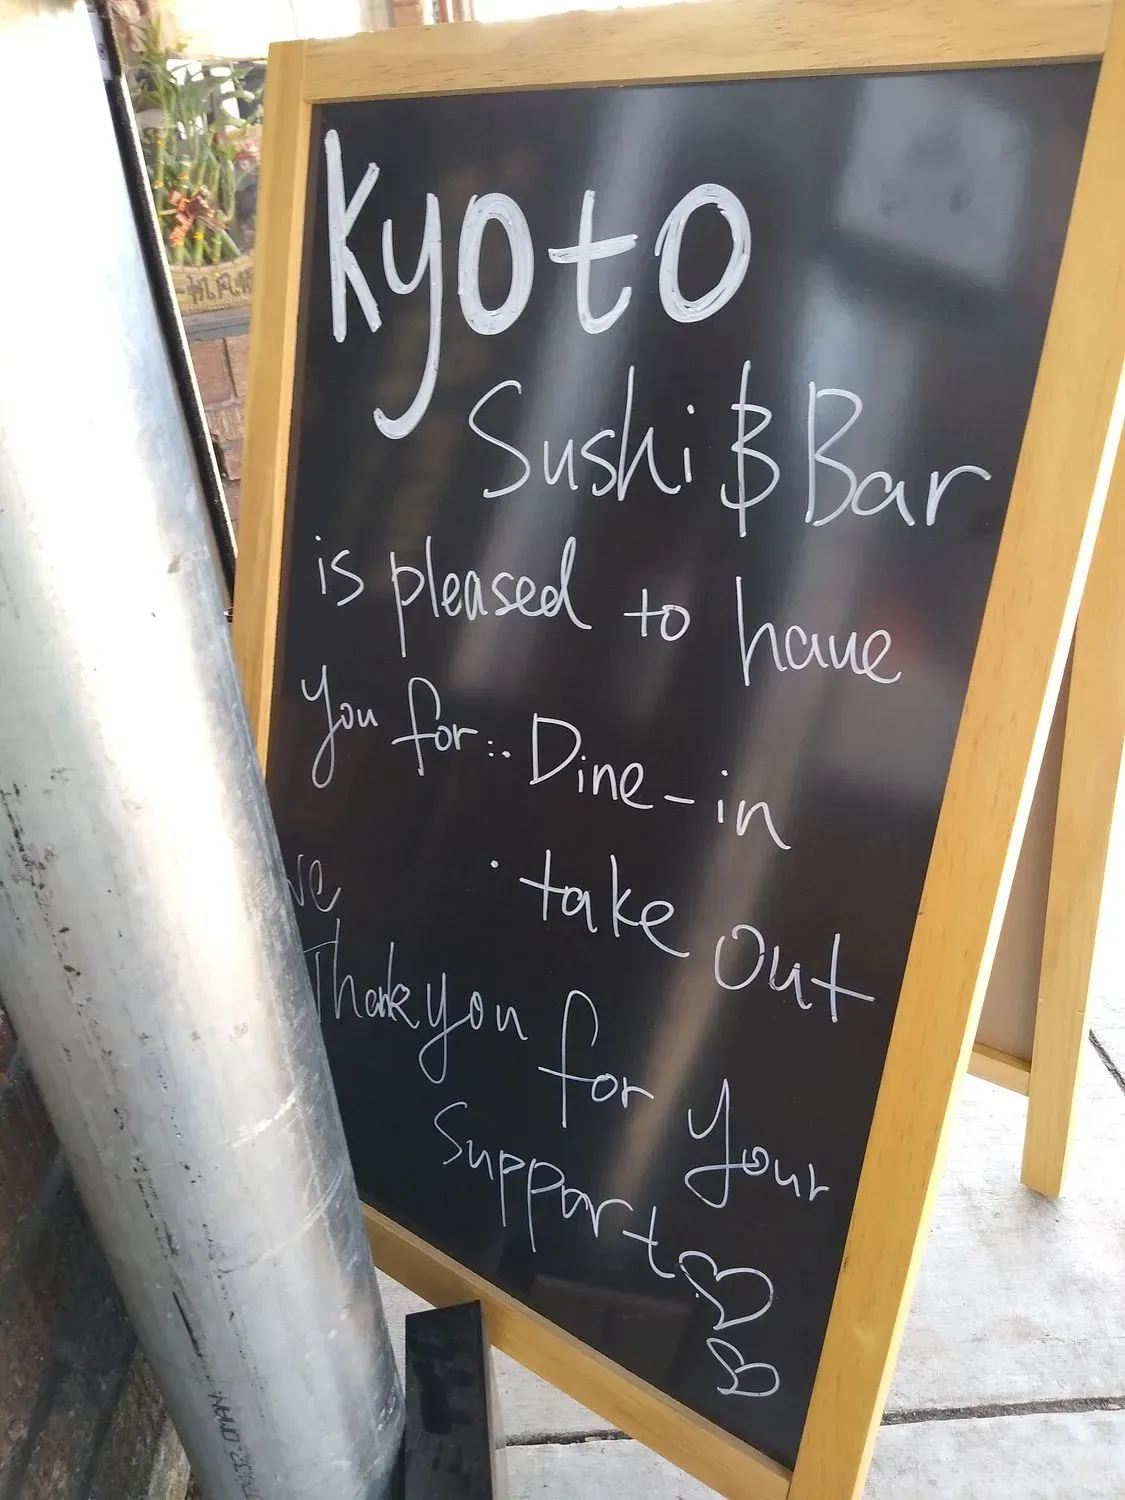 Kyoto
Sushi & Bar
is pleased to have
you for:. Dine-in
· take Out
ve
Thank you for your
Support